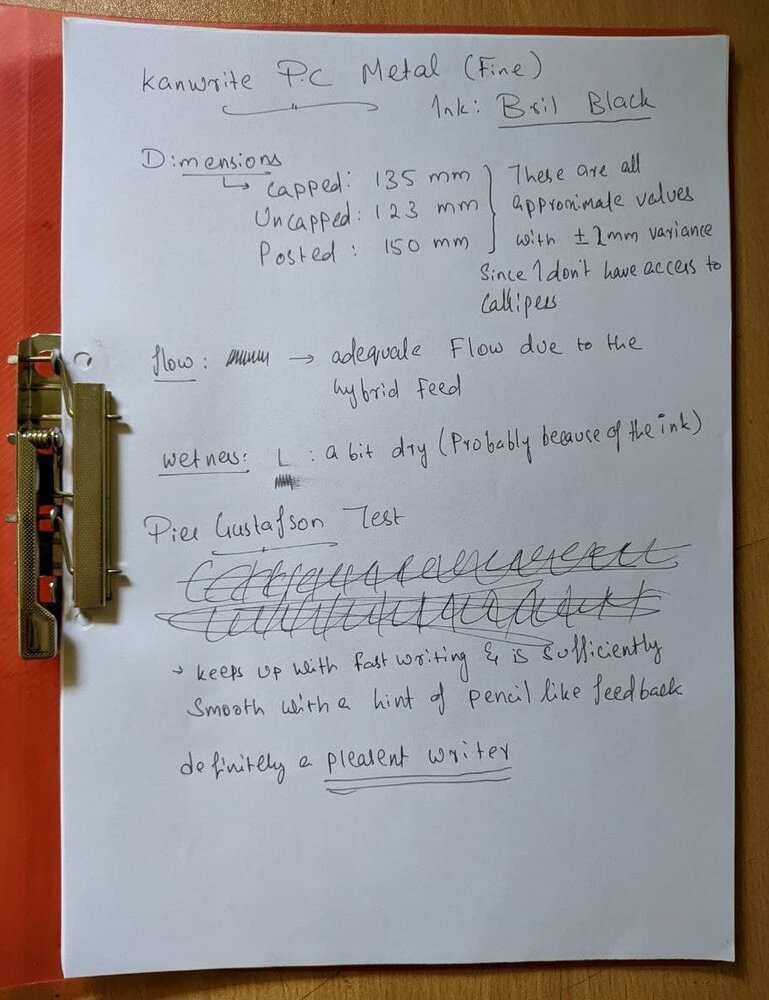 Kanwrite P.C Metal (Fine)
Ink: Bril Black
Dimensions
↳ Capped: 135 mm
Uncapped: 123 mm
Posted: 150 mm
These are all
approximate values
with ±2mm variance
Since I don't have access to
Callipers
flow: → adequate Flow due to the
hybrid feed
wetness: L : a bit dry (Probably because of the ink)
Pier Gustafson Test
→ keeps up with fast writing & is sufficiently
Smooth with a hint of pencil like feedback
definitely a pleasent writer